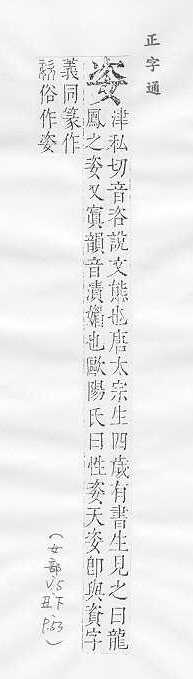 正字通
姿 津私切音咨說文態也唐太宗生四歲有書生見之曰龍
鳳之姿又寘韻音漬媚也歐陽氏曰性姿天姿卽與資字
義同篆作
俗作姿
(女部
V.5
丑下
P.53)